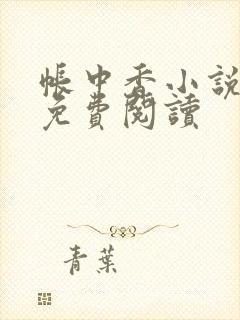 帳中香小說
免費閱讀
青葉